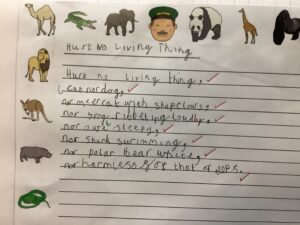 Hurt No Living Thing
Hurt no living thing,
Cannordog,
nor meercat with shapclaws,
nor frog ribbeting loudly,
nor sleepy,
nor Shark swimming,
nor polar bear white,
nor harmless that